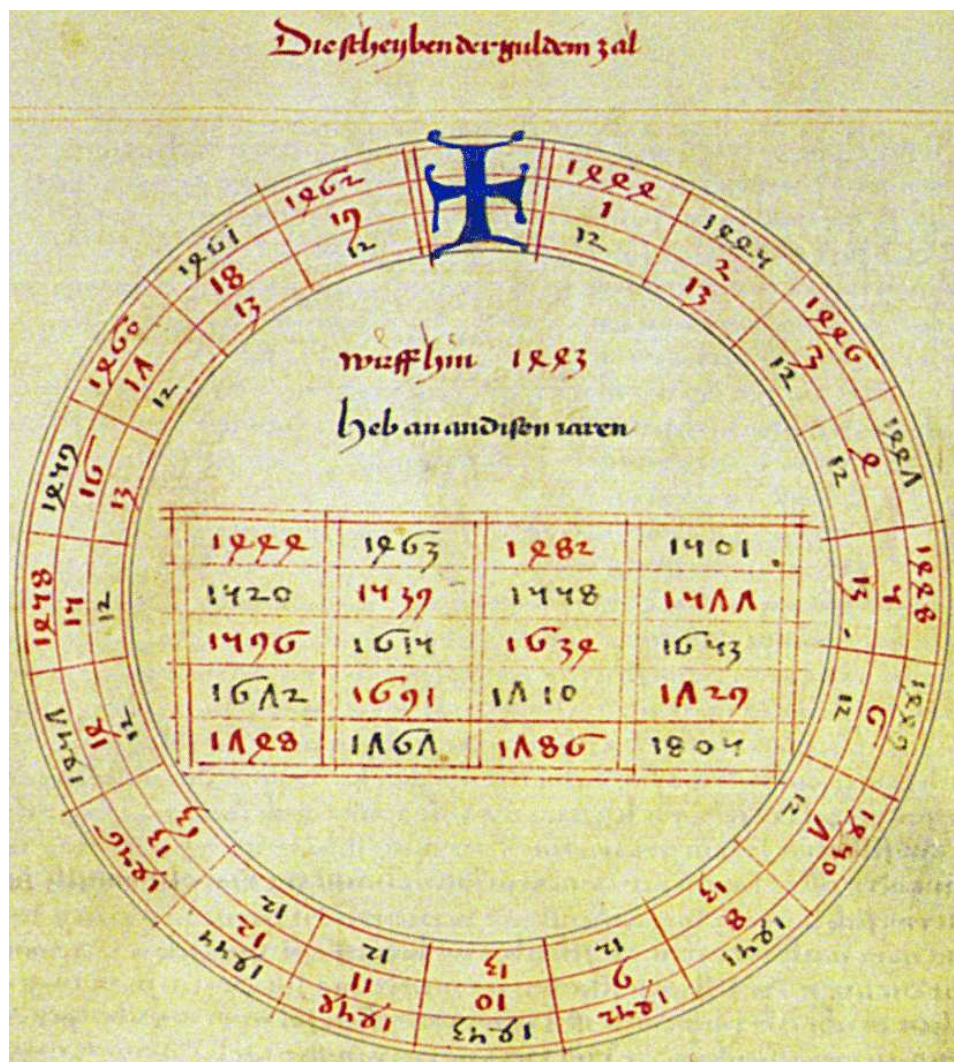 Die scheyben der guldem zal
1444 1 12
1445 2 13
1446 3 12
1447 4 12
1448 5 13
1449 6 12
1450 7 12
1451 8 13
1452 9 12
1453 10 13
1454 11 12
1455 12 12
1456 13 13
1457 14 12
1458 15 12
1459 16 13
1460 17 12
1461 18 13
1462 19 12
wirff hin 1443
heb an an disen iaren
1444 1463 1482 1501
1520 1539 1558 1577
1596 1615 1634 1653
1672 1691 1710 1729
1748 1767 1786 1805